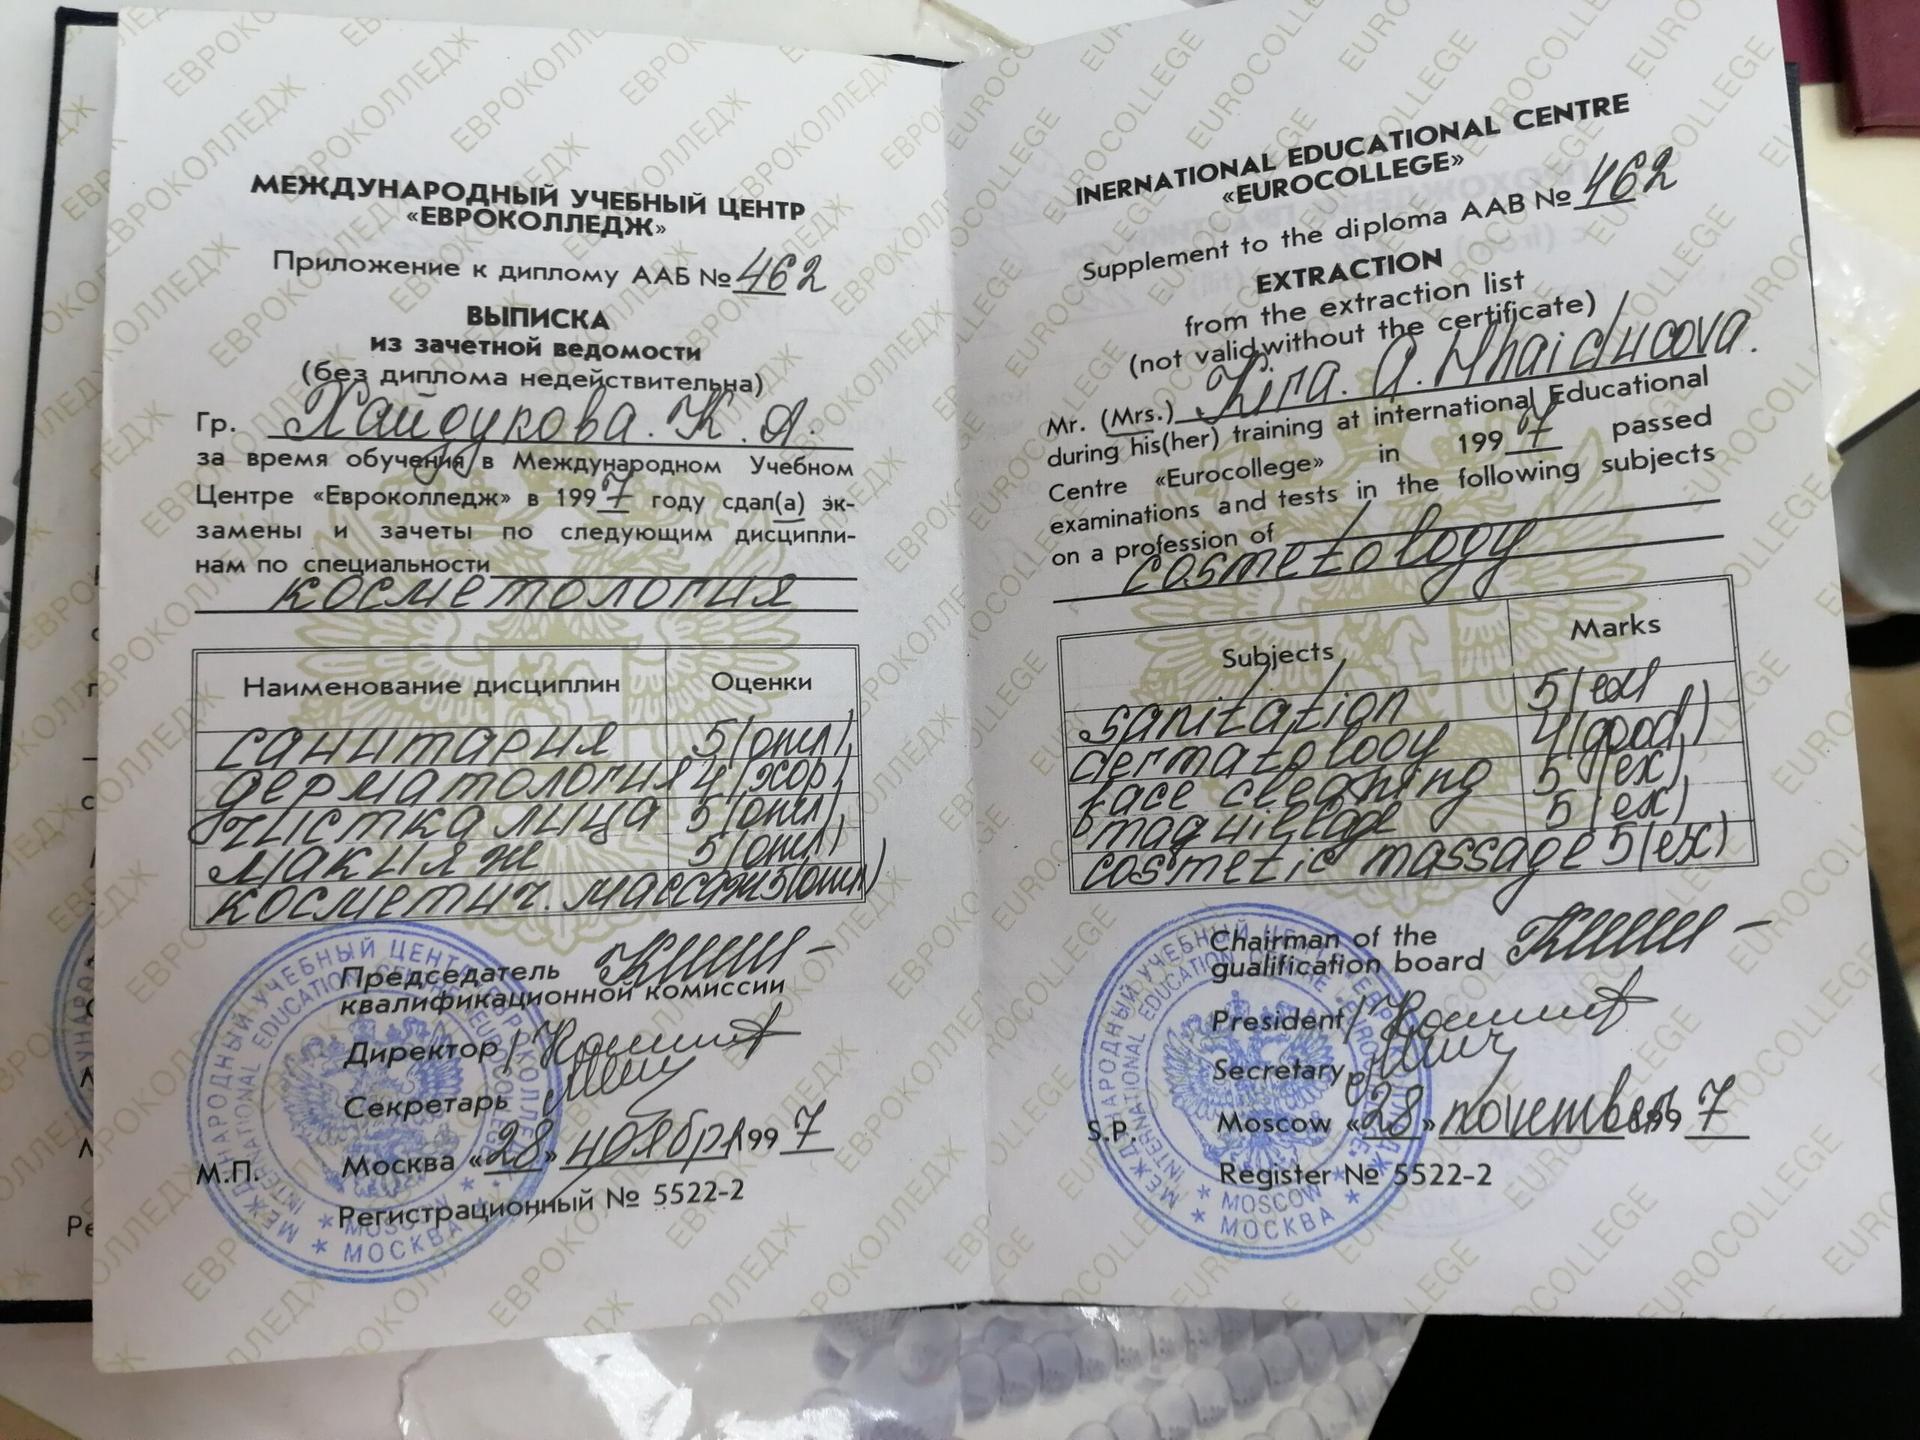 МЕЖДУНАРОДНЫЙ УЧЕБНЫЙ ЦЕНТР
«ЕВРОКОЛЛЕДЖ»
Приложение к диплому ААБ № 462
ВЫПИСКА
из зачетной ведомости
(без диплома недействительна)
Гр. Хайдукова. К. А.
за время обучения в Международном Учебном
Центре «Евроколледж» в 1997 году сдал(а) эк-
замены и зачеты по следующим дисципли-
нам по специальности
косметология
Наименование дисциплин Оценки
санитария 5(отл)
дерматология 4(хор)
чистка лица 5(отл)
макияж 5(отл)
косметич. массаж 5(отл)
Председатель
квалификационной комиссии
Директор
Секретарь
М.П. Москва «28» ноября 1997
Регистрационный № 5522-2
МЕЖДУНАРОДНЫЙ УЧЕБНЫЙ ЦЕНТР ЕВРОКОЛЛЕДЖ
INTERNATIONAL EDUCATION CENTRE EUROCOLLEGE
MOSCOW
МОСКВА
INERNATIONAL EDUCATIONAL CENTRE
«EUROCOLLEGE»
Supplement to the diploma AAB № 462
EXTRACTION
from the extraction list
(not valid without the certificate)
Mr. (Mrs.) Kira. A. Khaiducova.
during his(her) training at international Educational
Centre «Eurocollege» in 1997 passed
examinations and tests in the following subjects
on a profession of
cosmetology
Subjects Marks
sanitation 5(exl
dermatology 4(good)
face cleaning 5(ex)
maquillage 5(ex)
cosmetic massage 5(ex)
Chairman of the
gualification board
President
Secretary
S.P. Moscow «28» november 1997
Register № 5522-2
МЕЖДУНАРОДНЫЙ УЧЕБНЫЙ ЦЕНТР ЕВРОКОЛЛЕДЖ
INTERNATIONAL EDUCATION CENTRE EUROCOLLEGE
MOSCOW
МОСКВА